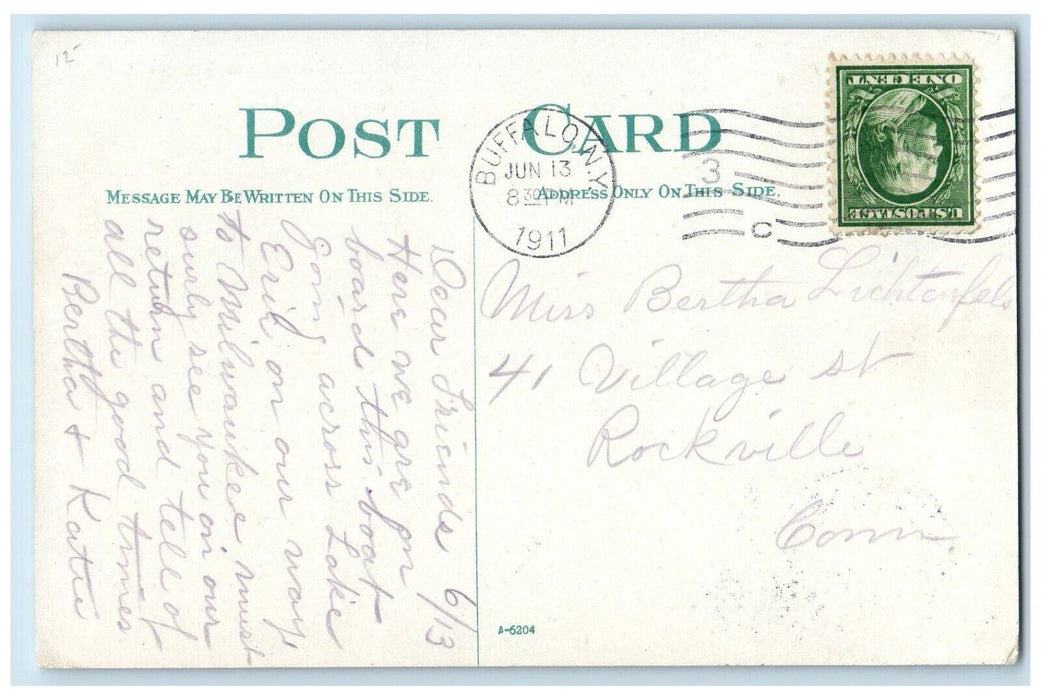 12-
POST CARD
MESSAGE MAY BE WRITTEN ON THIS SIDE.
ADDRESS ONLY ON THIS SIDE.
BUFFALO, N.Y.
JUN 13
8 30 PM
1911
3
C
ONE CENT
U.S. POSTAGE
6/13
Dear Friends
Here we are on
board this boat
going across Lake
Eril on our way
to Milwaukee must
surly see you on our
return and tell of
all the good times
Bertha + Katie
Miss Bertha Lichtenfels
41 Village st
Rockville
Conn.
A-5204